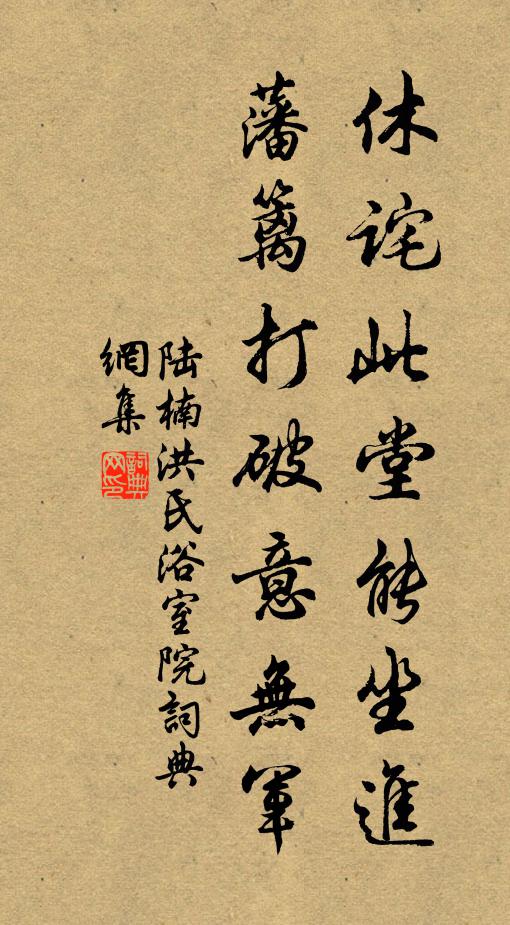 休詫此堂能坐進
藩篱打破意無軍
陆楠洪氏浴室院詞典
網集
詞典网印